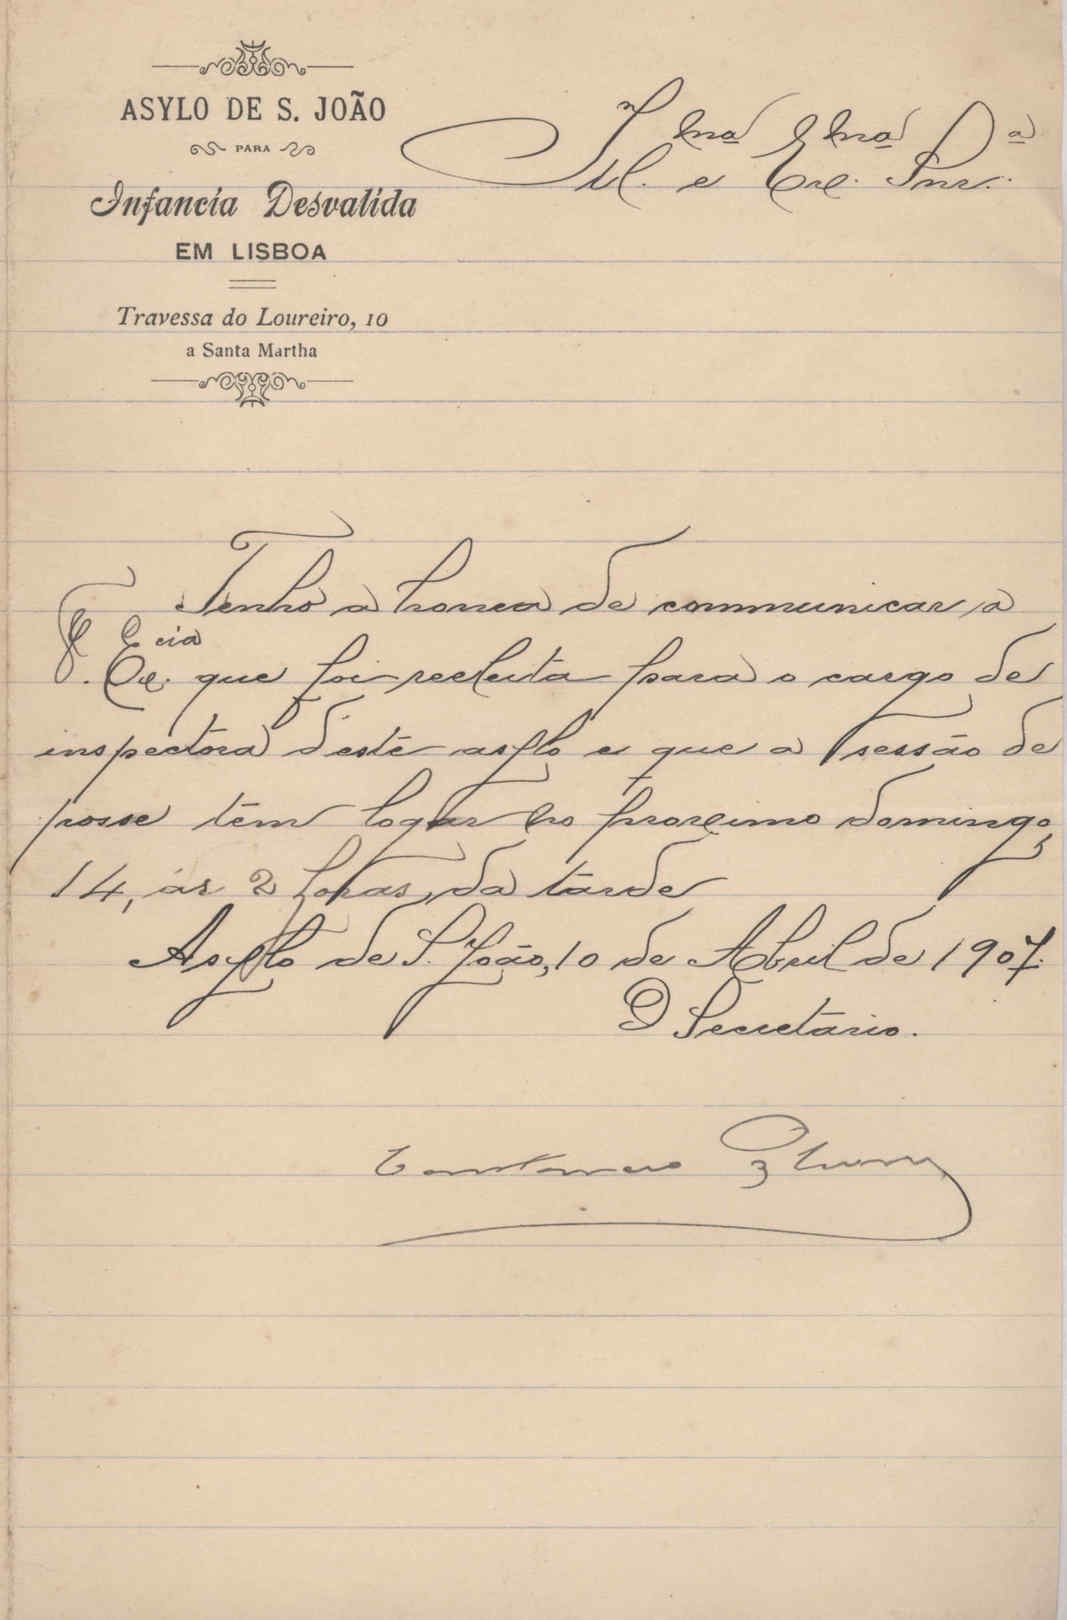 ASYLO DE S. JOÃO
PARA
Infancia Desvalida
EM LISBOA
Travessa do Loureiro, 10
a Santa Martha
Ill.ma e Exc.ma Snr.ª
Tenho a honra de communicar a
V. Exc.cia que foi reeleita para o cargo de
inspectora d'este asylo e que a sessão de
posse tem logar no proximo domingo,
14, ás 2 horas, da tarde
Asylo de S. João, 10 de Abril de 1907.
O Secretario.